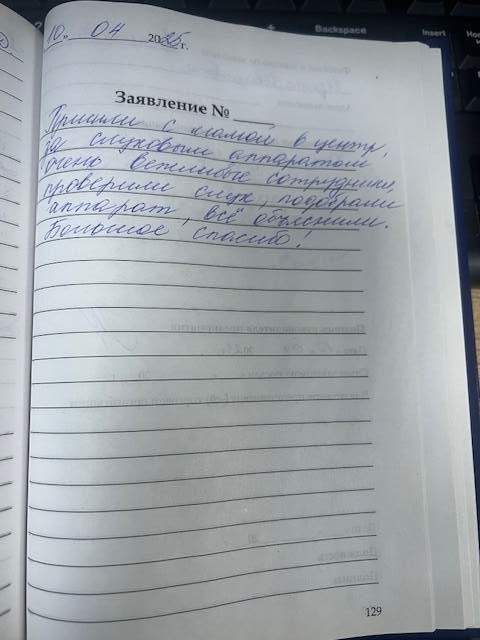 10. 04 2025г.
Заявление № ____
Пришли с мамой в центр,
за слуховым аппаратом
очень вежливые сотрудники,
проверили слух, подобрали
аппарат, всё объяснили.
Большое спасибо!
129
Backspace
Insert